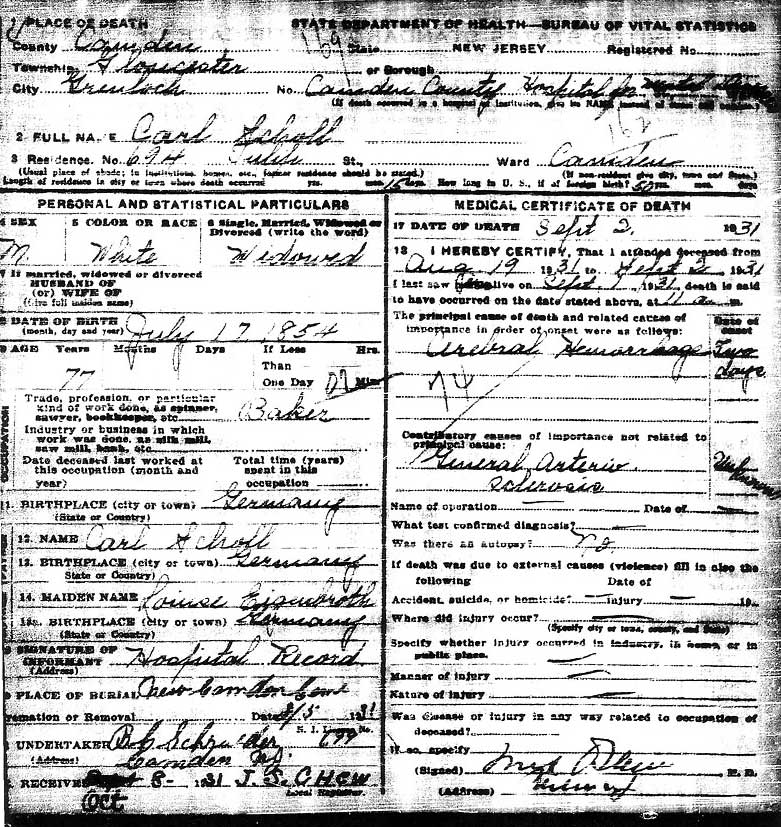 PLACE OF DEATH
STATE DEPARTMENT OF HEALTH—BUREAU OF VITAL STATISTICS
County Camden State NEW JERSEY Registered No.
Township Gloucester or Borough
City Grenloch No. Camden County Hospital for Mental
(If death occurred in a hospital or institution, give its NAME instead of street and number)
2 FULL NAME Carl Scholl
3 Residence. No. 694 St., Ward Camden
(Usual place of abode; in institutions, homes, etc., former residence should be stated.) (If non-resident give city, town and State.)
Length of residence in city or town where death occurred yrs. mos. 15 days. How long in U. S., if of foreign birth? 50 yrs. mos. days
PERSONAL AND STATISTICAL PARTICULARS
4 SEX 5 COLOR OR RACE 6 Single, Married, Widowed or
Divorced (write the word)
M White Widowed
7 If married, widowed or divorced
HUSBAND OF
(or) WIFE OF
(Give full maiden name)
8 DATE OF BIRTH
(month, day and year) July 17 1854
9 AGE Years Months Days If Less Hrs.
Than
77 One Day Min
Trade, profession, or particular
kind of work done, as spinner,
sawyer, bookkeeper, etc. Baker
Industry or business in which
work was done, as silk mill,
saw mill, bank, etc.
Date deceased last worked at Total time (years)
this occupation (month and spent in this
year) occupation
OCCUPATION
11. BIRTHPLACE (city or town) Germany
(State or Country)
12. NAME Carl Scholl
13. BIRTHPLACE (city or town) Germany
State or Country)
14. MAIDEN NAME Louise
15. BIRTHPLACE (city or town) Germany
(State or Country)
SIGNATURE OF
INFORMANT Hospital Record
(Address)
PLACE OF BURIAL New Camden Cem
Cremation or Removal Date 9/5 1931
N. J. No.
UNDERTAKER B C Schroeder
(Address) Camden NJ.
RECEIVED 8- 1931 J. S. CHEW
Local Registrar.
Oct
MEDICAL CERTIFICATE OF DEATH
17 DATE OF DEATH Sept 2. 1931
18 I HEREBY CERTIFY, That I attended deceased from
Aug 19 1931 to Sept 2 1931
I last saw alive on Sept. 1 1931 death is said
to have occurred on the date stated above, at 11 a m.
The principal cause of death and related causes of
importance in order of onset were as follows:
Date of
onset
Cerebral Hemorrhage Two
days
74
Contributory causes of importance not related to
principal cause:
General Arterio
Sclerosis Unknown
Name of operation Date of
What test confirmed diagnosis?
Was there an autopsy? No
If death was due to external causes (violence) fill in also the
following Date of
Accident, suicide, or homicide? injury 19
Where did injury occur?
(Specify city or town, county, and State)
Specify whether injury occurred in industry, in home, or in
public place.
Manner of injury
Nature of injury
Was disease or injury in any way related to occupation of
deceased?
If so, specify
(Signed) M. D.
(Address)